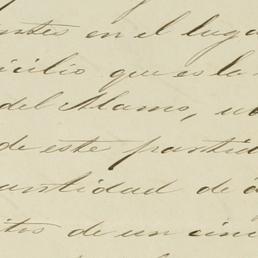 ntes en el luga
icilio que es la
del Alamo, u
de este partid
antidad de
itos de un cin